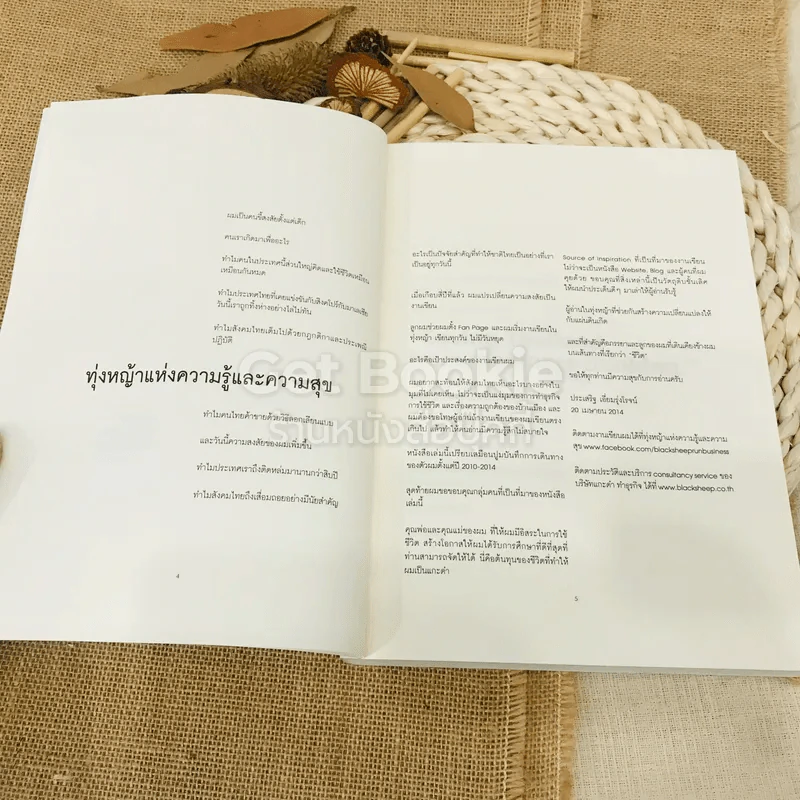 ผมเป็นคนขี้สงสัยตั้งแต่เด็ก
คนเราเกิดมาเพื่ออะไร
ทำไมคนในประเทศนี้ส่วนใหญ่คิดและใช้ชีวิตเหมือน
เหมือนกันหมด
ทำไมประเทศไทยที่เคยแข่งขันกับสิงคโปร์กับมาเลเซีย
วันนี้เราถูกทิ้งห่างอย่างไล่ไม่ทัน
ทำไมสังคมไทยเต็มไปด้วยกฎกติกาและประเพณี
ปฏิบัติ
ทุ่งหญ้าแห่งความรู้และความสุข
ทำไมคนไทยค้าขายด้วยวิธีลอกเลียนแบบ
และวันนี้ความสงสัยของผมเพิ่มขึ้น
ทำไมประเทศเราถึงติดหล่มมานานกว่าสิบปี
ทำไมสังคมไทยถึงเสื่อมถอยอย่างมีนัยสำคัญ
4
อะไรเป็นปัจจัยสำคัญที่ทำให้ชาติไทยเป็นอย่างที่เรา
เป็นอยู่ทุกวันนี้
เมื่อเกือบสี่ปีที่แล้ว ผมแปรเปลี่ยนความสงสัยเป็น
งานเขียน
ลูกผมช่วยผมตั้ง Fan Page และผมเริ่มงานเขียนใน
ทุ่งหญ้า เขียนทุกวัน ไม่มีวันหยุด
อะไรคือเป้าประสงค์ของงานเขียนผม
ผมอยากสะท้อนให้สังคมไทยเห็นอะไรบางอย่างใน
มุมที่ไม่เคยเห็น ไม่ว่าจะเป็นแง่มุมของการทำธุรกิจ
การใช้ชีวิต และเรื่องความถูกต้องของบ้านเมือง และ
ผมต้องขอโทษผู้อ่านถ้างานเขียนของผมเขียนตรง
เกินไป แล้วทำให้คนอ่านมีความรู้สึกไม่สบายใจ
หนังสือเล่มนี้เปรียบเสมือนปูมบันทึกการเดินทาง
ของตัวผมตั้งแต่ปี 2010-2014
สุดท้ายผมขอขอบคุณกลุ่มคนที่เป็นที่มาของหนังสือ
เล่มนี้
คุณพ่อและคุณแม่ของผม ที่ให้ผมมีอิสระในการใช้
ชีวิต สร้างโอกาสให้ผมได้รับการศึกษาที่ดีที่สุดที่
ท่านสามารถจัดให้ได้ นี่คือต้นทุนของชีวิตที่ทำให้
ผมเป็นแกะดำ
Source of Inspiration ที่เป็นที่มาของงานเขียน
ไม่ว่าจะเป็นหนังสือ Website, Blog และผู้คนที่ผม
คุยด้วย ขอบคุณที่สิ่งเหล่านี้เป็นวัตถุดิบชั้นเลิศ
ให้ผมนำประเด็นดีๆ มาเล่าให้ผู้อ่านรับรู้
ผู้อ่านในทุ่งหญ้าที่ช่วยกันสร้างความเปลี่ยนแปลงให้
กับแผ่นดินเกิด
และที่สำคัญคือภรรยาและลูกของผมที่เดินเคียงข้างผม
บนเส้นทางที่เรียกว่า "ชีวิต"
ขอให้ทุกท่านมีความสุขกับการอ่านครับ
ประเสริฐ เอี่ยมรุ่งโรจน์
20 เมษายน 2014
ติดตามงานเขียนผมได้ที่ทุ่งหญ้าแห่งความรู้และความ
สุข www.facebook.com/blacksheeprunbusiness
ติดตามประวัติและบริการ consultancy service ของ
บริษัทแกะดำ ทำธุรกิจ ได้ที่ www.blacksheep.co.th
5
Get Bookie
ร้านหนังสือมือ